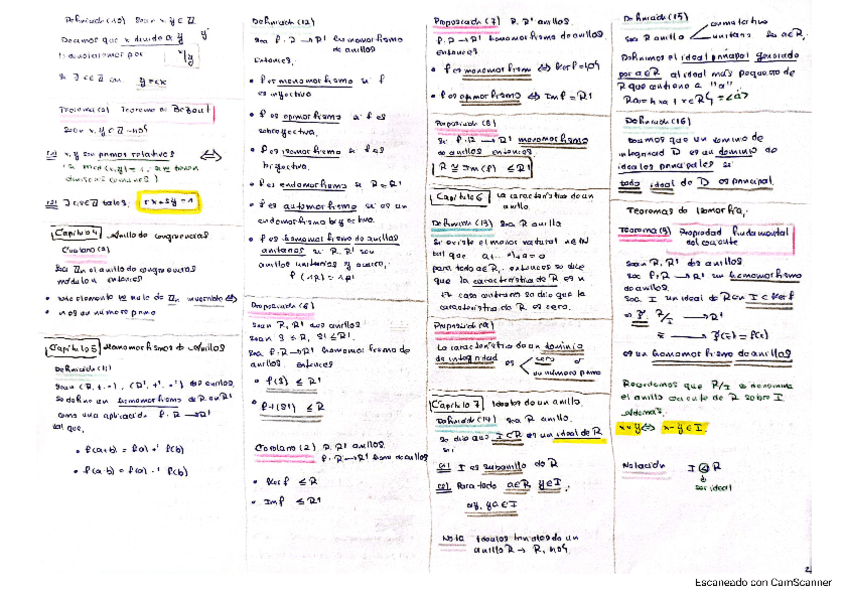 Definición (10) Sean x, y ∈ ℤ
Decimos que x divide a y
x|y
y = cx
Teorema de Bezout
x, y son primos relativos ⟺
rx + sy = 1
Capítulo 4 Anillo de congruencias
Corolario
Sea ℤn el anillo de congruencias
módulo n entonces
• n es un número primo
Capítulo 5 Homomorfismos de anillos
Definición (11)
Sean (R, +, ·), (R', +', ·') dos anillos.
Se define un homomorfismo de R en R'
como una aplicación f: R → R'
tal que,
• f(a+b) = f(a) +' f(b)
• f(a·b) = f(a) ·' f(b)
Definición (12)
Sea f: R → R' homomorfismo
de anillos
Entonces,
• f es monomorfismo si f
es inyectiva
• f es epimorfismo si f es
sobreyectiva.
• f es isomorfismo si f es
biyectiva.
• f es endomorfismo si R = R'
• f es automorfismo si es un
endomorfismo biyectivo.
• f es homomorfismo de anillos
unitarios si R, R' son
anillos unitarios y
f(1R) = 1R'
Proposición (6)
Sean R, R' dos anillos
Sean S ≤ R, S' ≤ R'.
Sea f: R → R' homomorfismo de
anillos entonces
• f(S) ≤ R'
• f-1(S') ≤ R
Corolario (2) R, R' anillos.
f: R → R' homo de anillos
• Ker f ≤ R
• Im f ≤ R'
Proposición (7) R, R' anillos.
f: R → R' homomorfismo de anillos.
entonces
• f es monomorfismo ⟺ Ker f = {0}
• f es epimorfismo ⟺ Im f = R'
Proposición (8)
Si f: R → R' monomorfismo
de anillos entonces
R ≅ Im(f) ≤ R'
Capítulo 6 La característica de un
anillo.
Definición (13) Sea R anillo
Si existe el menor natural n∈ℕ
tal que
para todo a∈R, entonces se dice
que la característica de R es n
En caso contrario se dice que la
característica de R es cero.
Proposición (9)
La característica de un dominio
de integridad es cero o
un número primo
Capítulo 7 Ideales de un anillo.
Definición (14) Sea R anillo.
Se dice que I⊂R es un ideal de R
si:
(1) I es subanillo de R
(2) Para todo a∈R y∈I,
ay, ya∈I
Nota Ideales triviales de un
anillo R → R, {0}
Definición (15)
Sea R anillo conmutativo
unitario Sea a∈R,
Definimos el ideal principal generado
por a∈R al ideal más pequeño de
R que contiene a "a"
Definición (16)
Decimos que un dominio de
integridad D es un dominio de
ideales principales si
todo ideal de D es principal.
Teoremas de Isomorfía,
Teorema (3) Propiedad fundamental
del cociente
Sean R, R' dos anillos
Sea f: R → R' un homomorfismo
de anillos.
Sea I un ideal de R con I ⊂ Ker f
es un homomorfismo de anillos
Recordemos que R/I se denomina
el anillo cociente de R sobre I
además:
x - y ∈ I
Notación I ◁ R
ser ideal
2
Escaneado con CamScanner